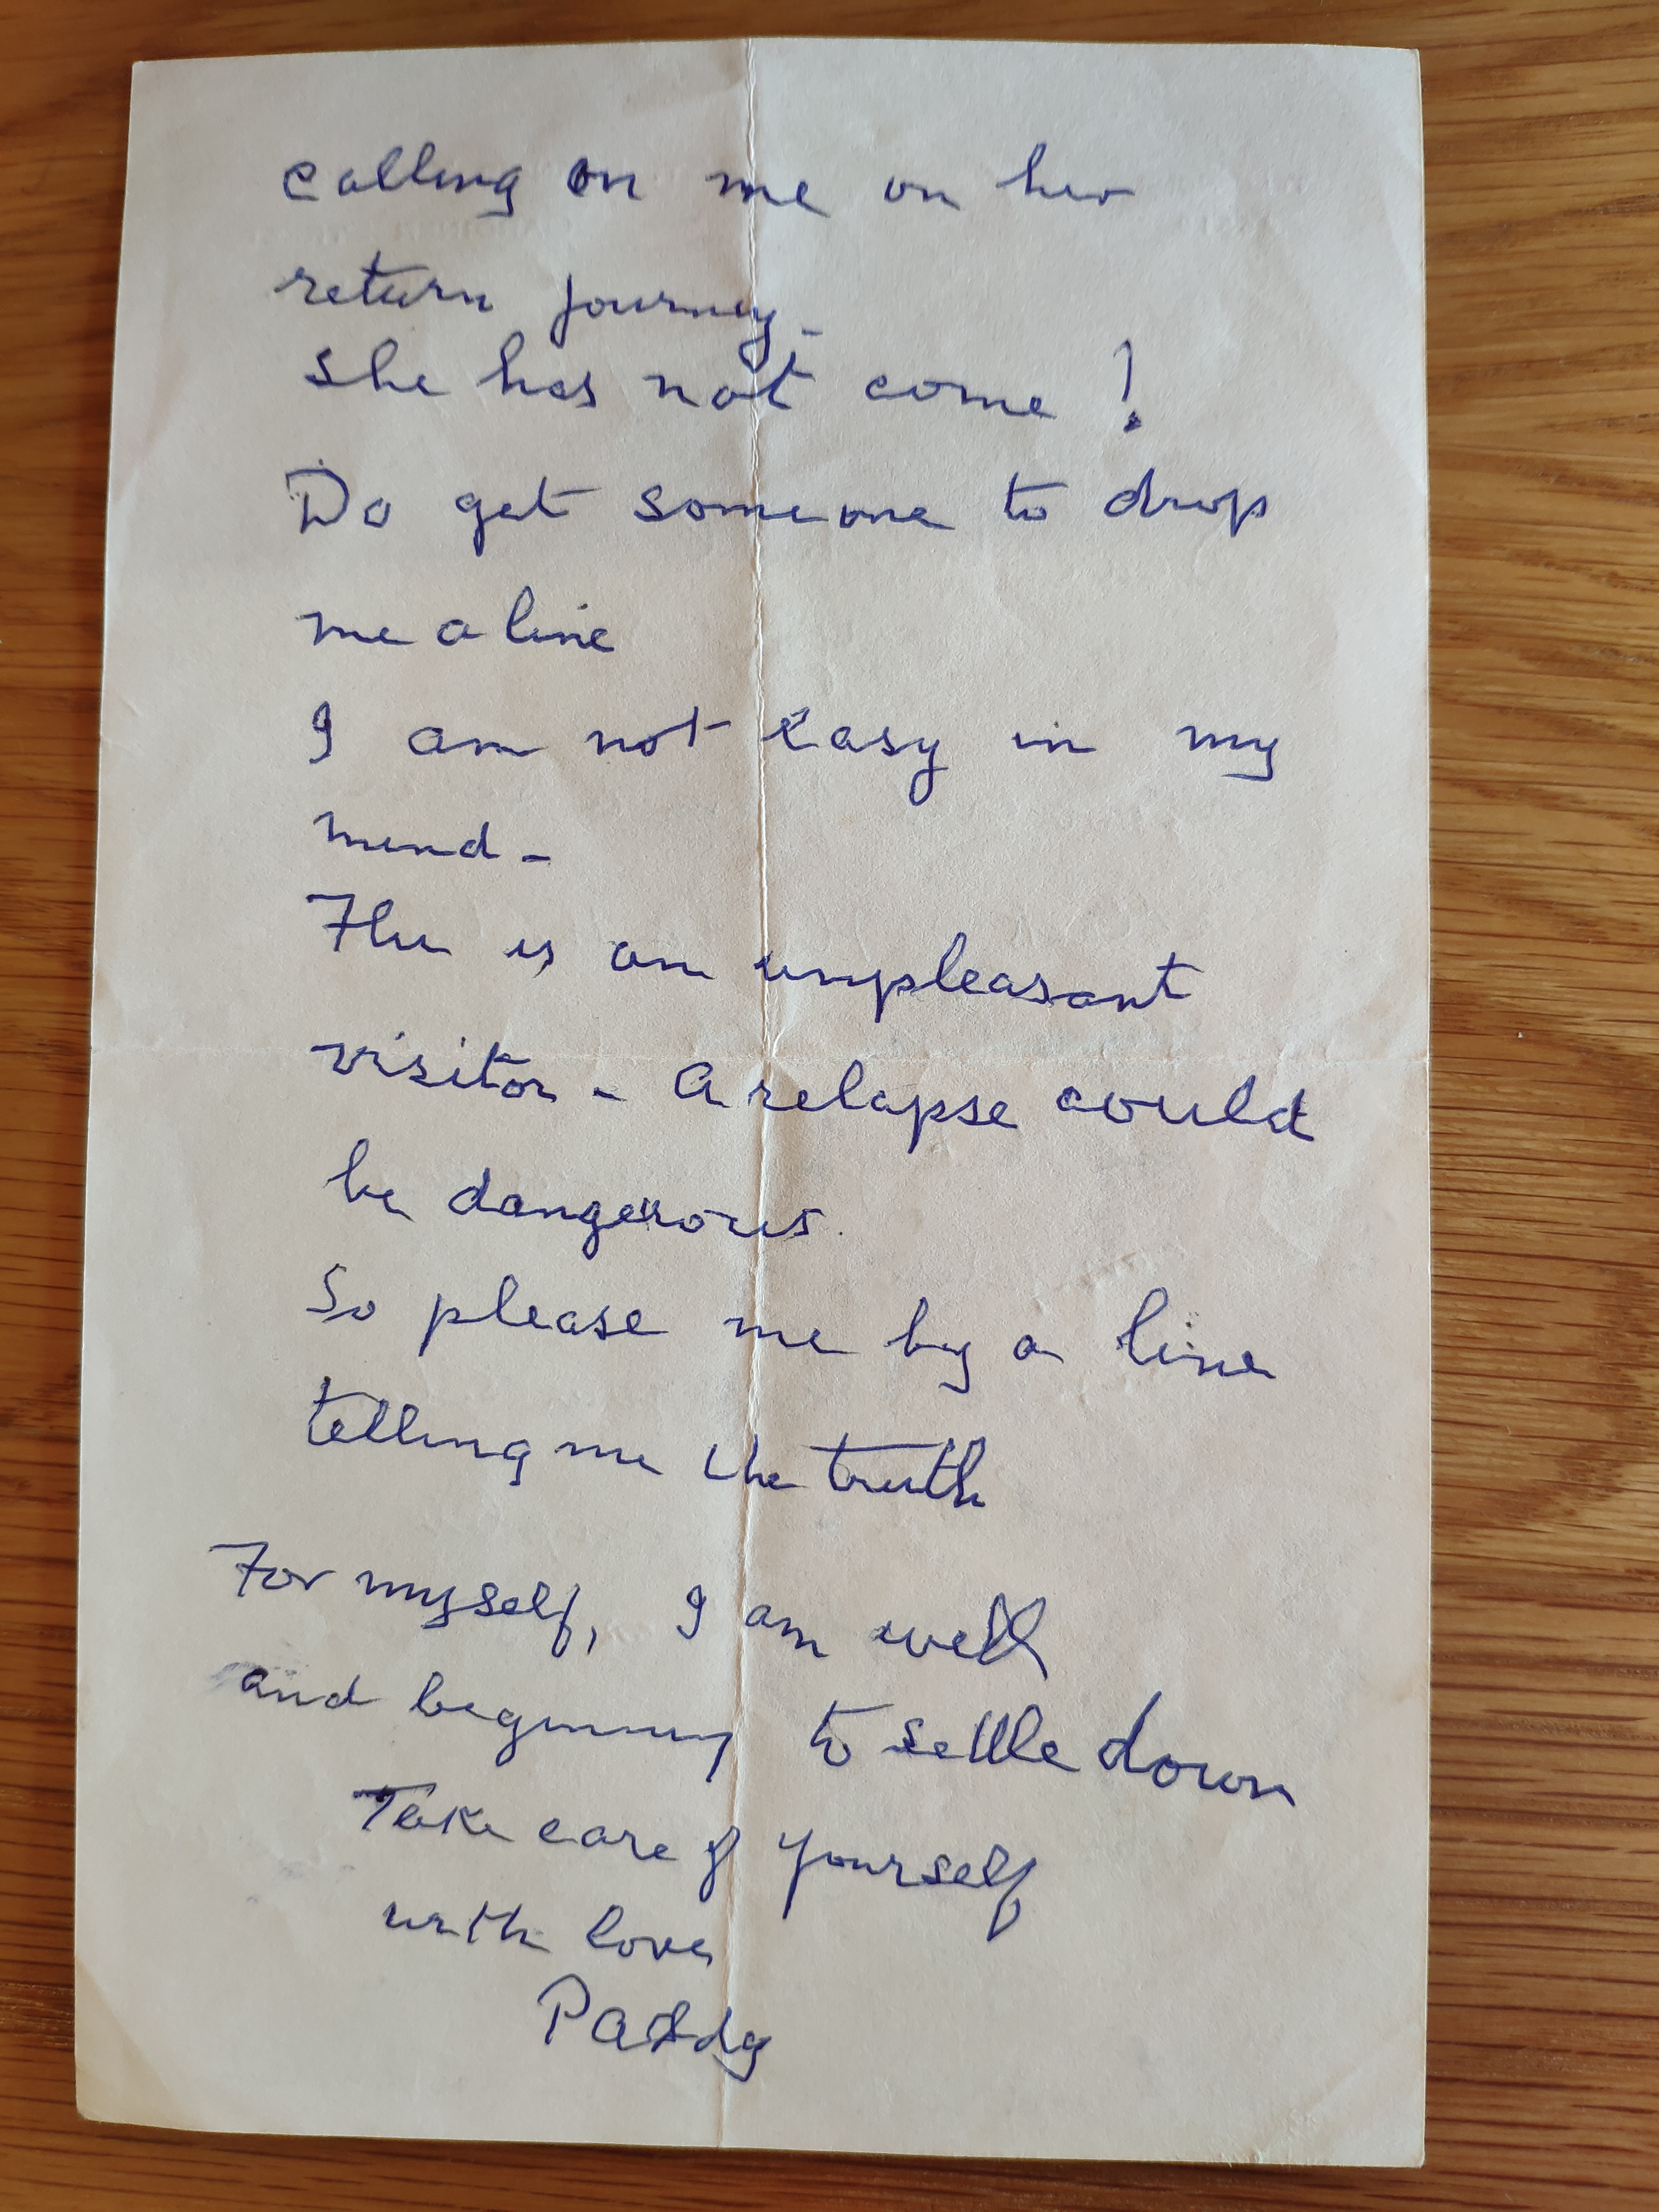 calling on me on her
return journey -
She has not come !
Do get someone to drop
me a line
I am not easy in my
mind -
Flu is an unpleasant
visitor - A relapse could
be dangerous.
So please me by a line
telling me the truth
For myself, I am well
and beginning to settle down
Take care of yourself
with love
Paddy